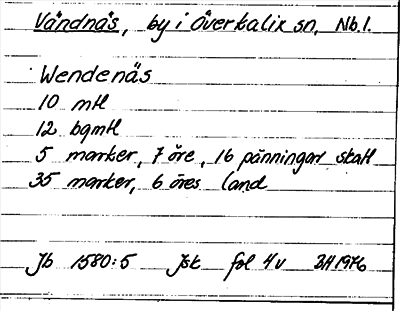 Vändnäs, by i Överkalix sn, Nb.l.
Wendenäs
10 mtl
12 bgmtl
5 marker, 7 öre, 16 pänningar skatt
35 marker, 6 öres land
Jb 1580:5 Jsk fol 4v